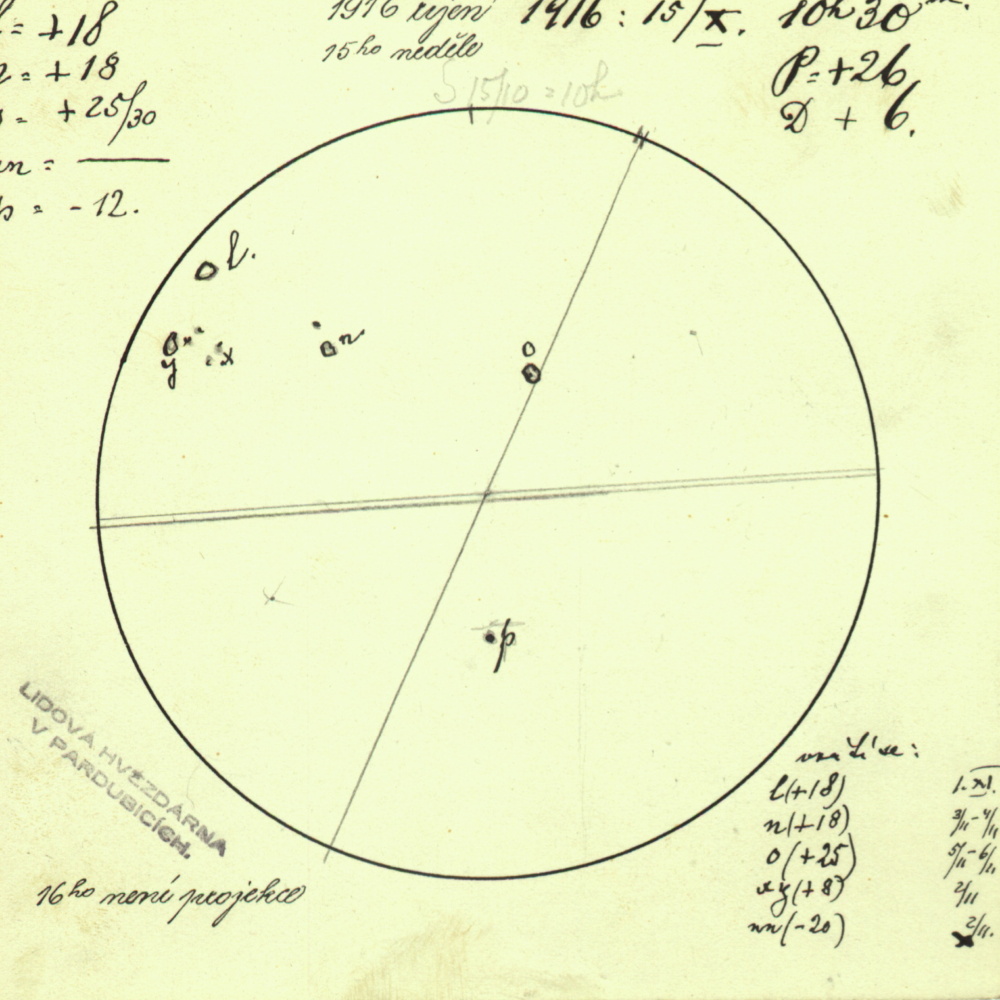 = +18
= +18
= +25/30
= —
= -12.
1916 říjen
15ho neděle
1916 : 15/X. 10h 30m.
P = +26
D + 6.
S 15/10 = 10h
N
l.
y
x
n
o
p
LIDOVÁ HVĚZDÁRNA
V PARDUBICÍCH.
16ho není projekce
l(+18) 1. XI.
n(+18) 3/11-4/11
o(+25) 5/11-6/11
xy(+8) 2/11
nn(-20) 2/11.